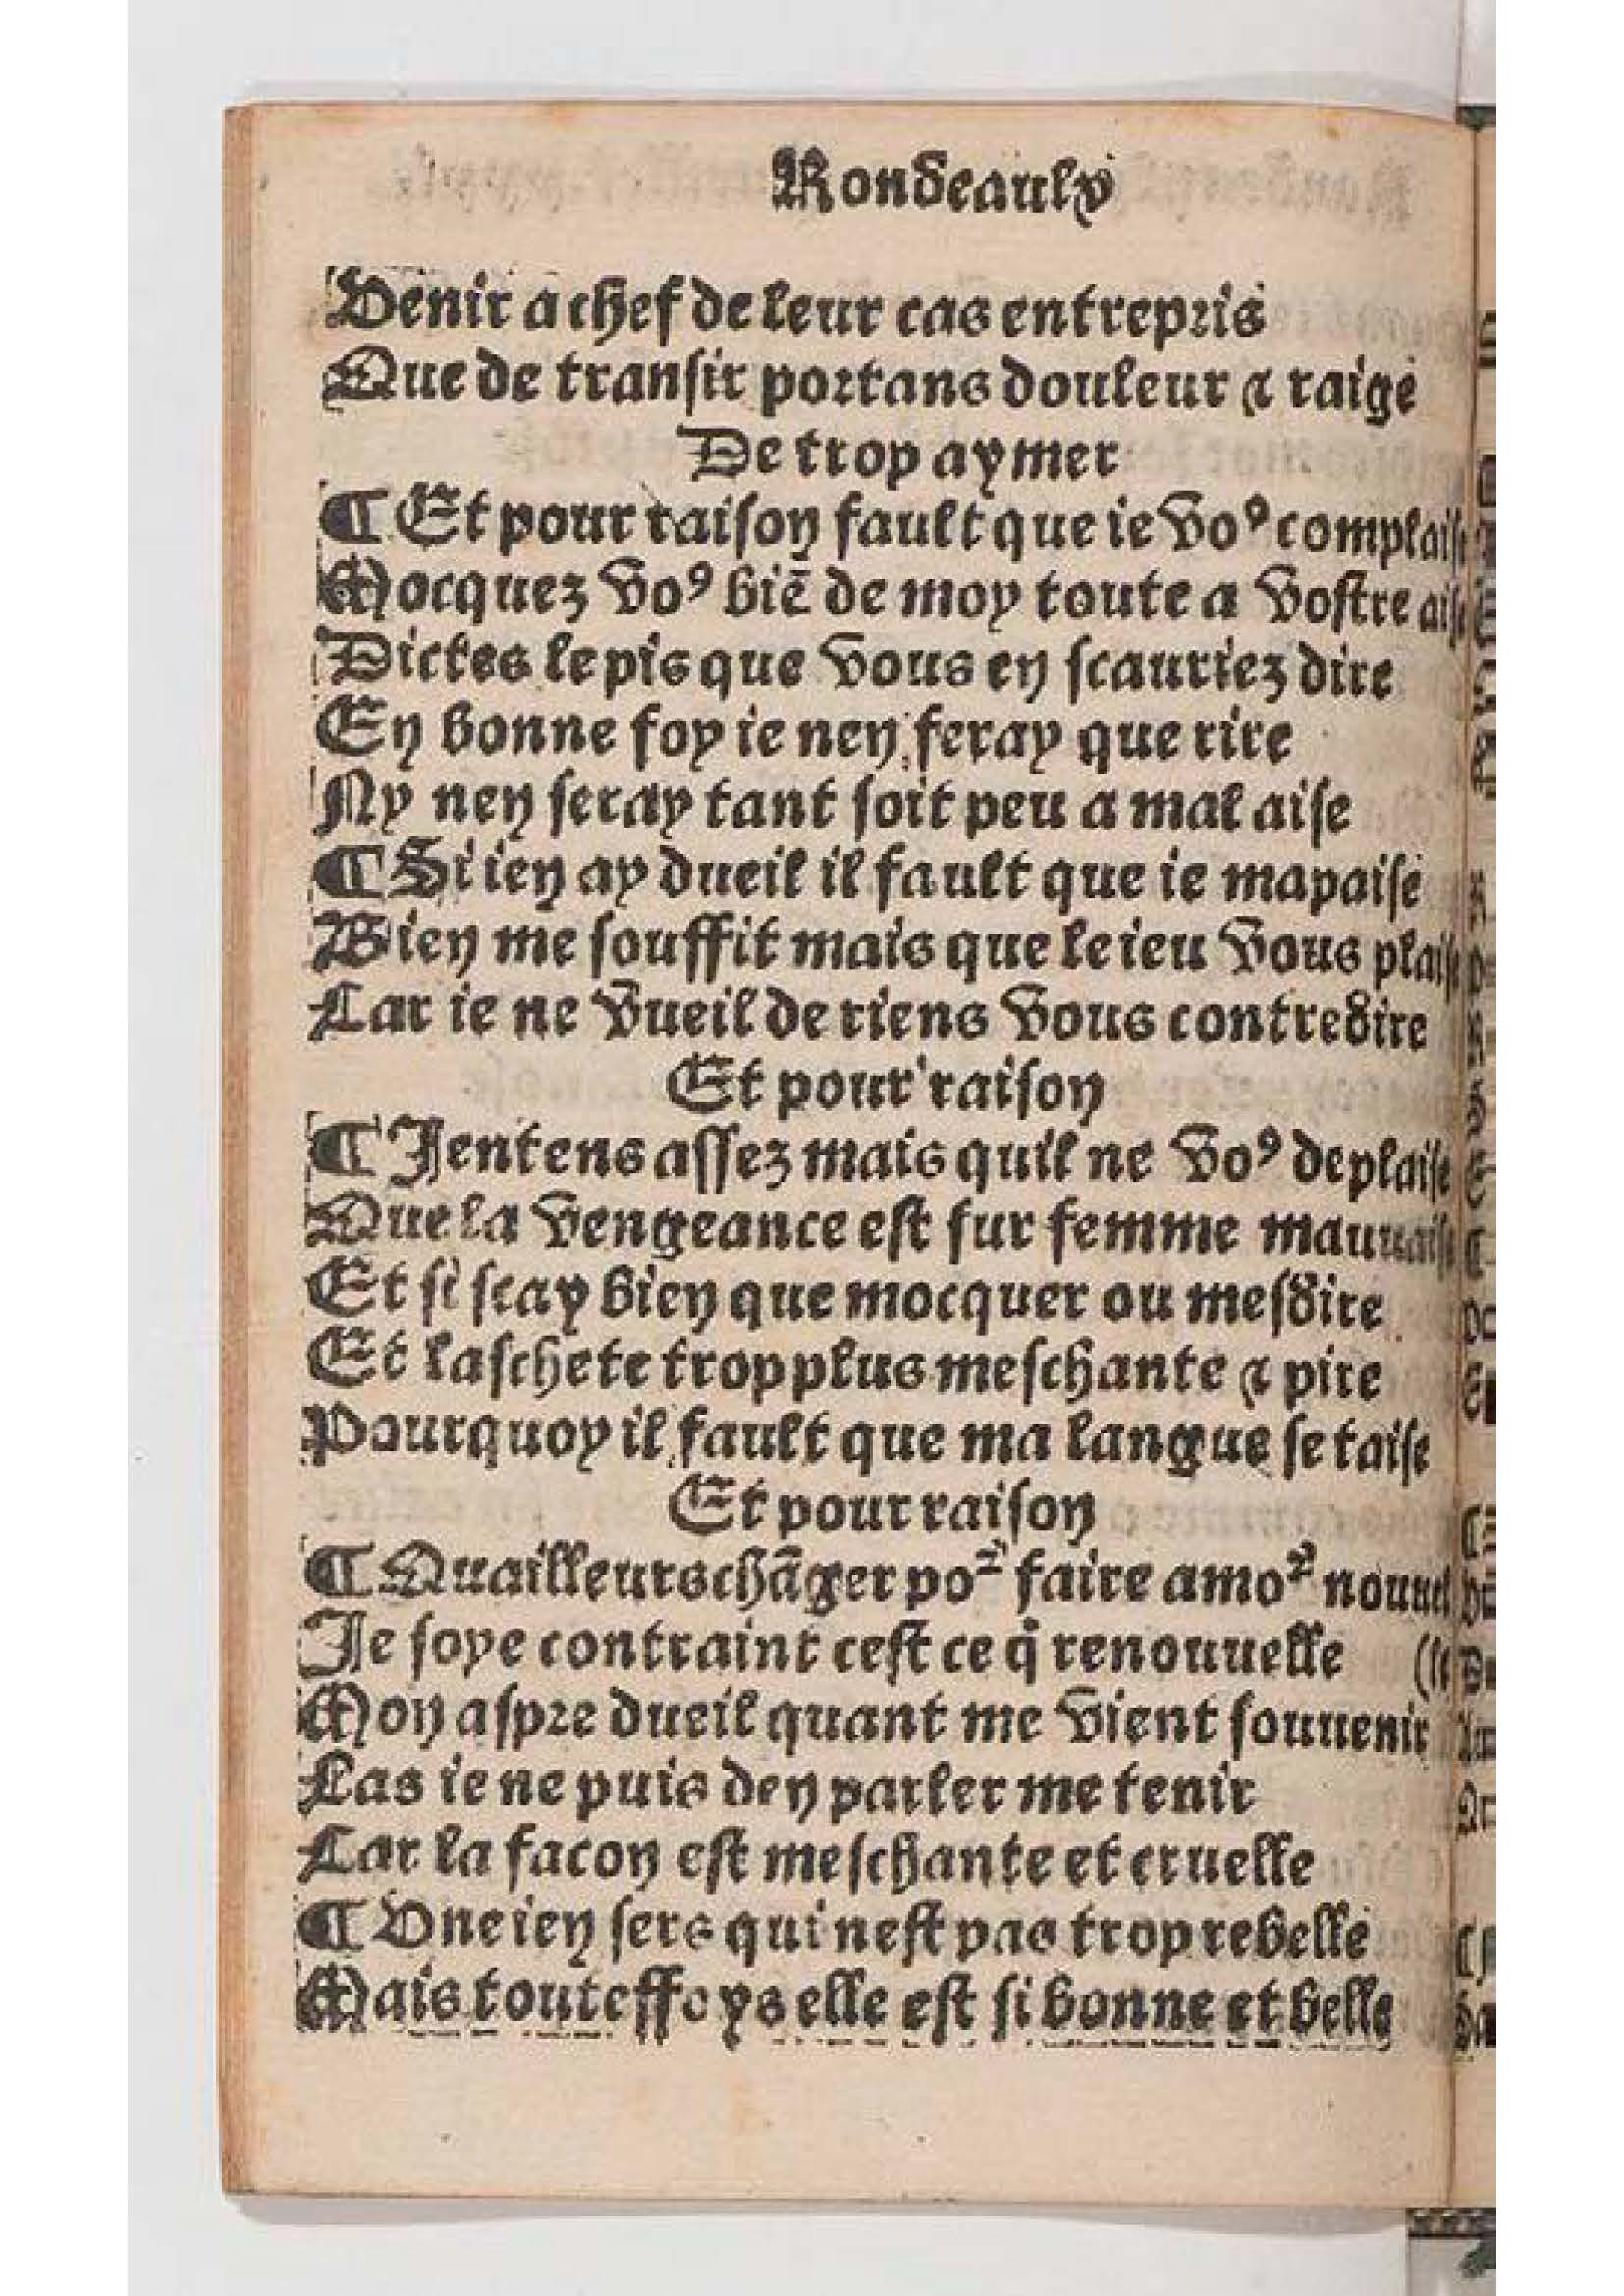 Rondeaulx
Venir a chef de leur cas entrepris
Que de transir portans douleur ⁊ raige
De trop aymer
¶ Et pour raison fault que ie voꝰ complaise
Mocquez voꝰ biē de moy toute a vostre aise
Dictes le pis que vous en scauriez dire
En bonne foy ie nen feray que rire
Ny nen seray tant soit peu a mal aise
¶ Si ien ay dueil il fault que ie mapaise
Bien me souffit mais que le ieu vous plaise
Car ie ne vueil de riens vous contredire
Et pour raison
¶ Jentens assez mais quil ne voꝰ deplaise
Que la vengeance est sur femme mauuaise
Et si scay bien que mocquer ou mesdire
Et laschete trop plus meschante ⁊ pire
Pourquoy il fault que ma langue se taise
Et pour raison
¶ Quailleurs chāger poꝛ faire amoꝛ nouuel
Je soye contraint cest ce q̇ renouuelle (le
Mon aspre dueil quant me vient souuenir
Las ie ne puis den parler me tenir
Car la facon est meschante et cruelle
¶ Vne ien sers qui nest pas trop rebelle
Mais touteffoys elle est si bonne et belle